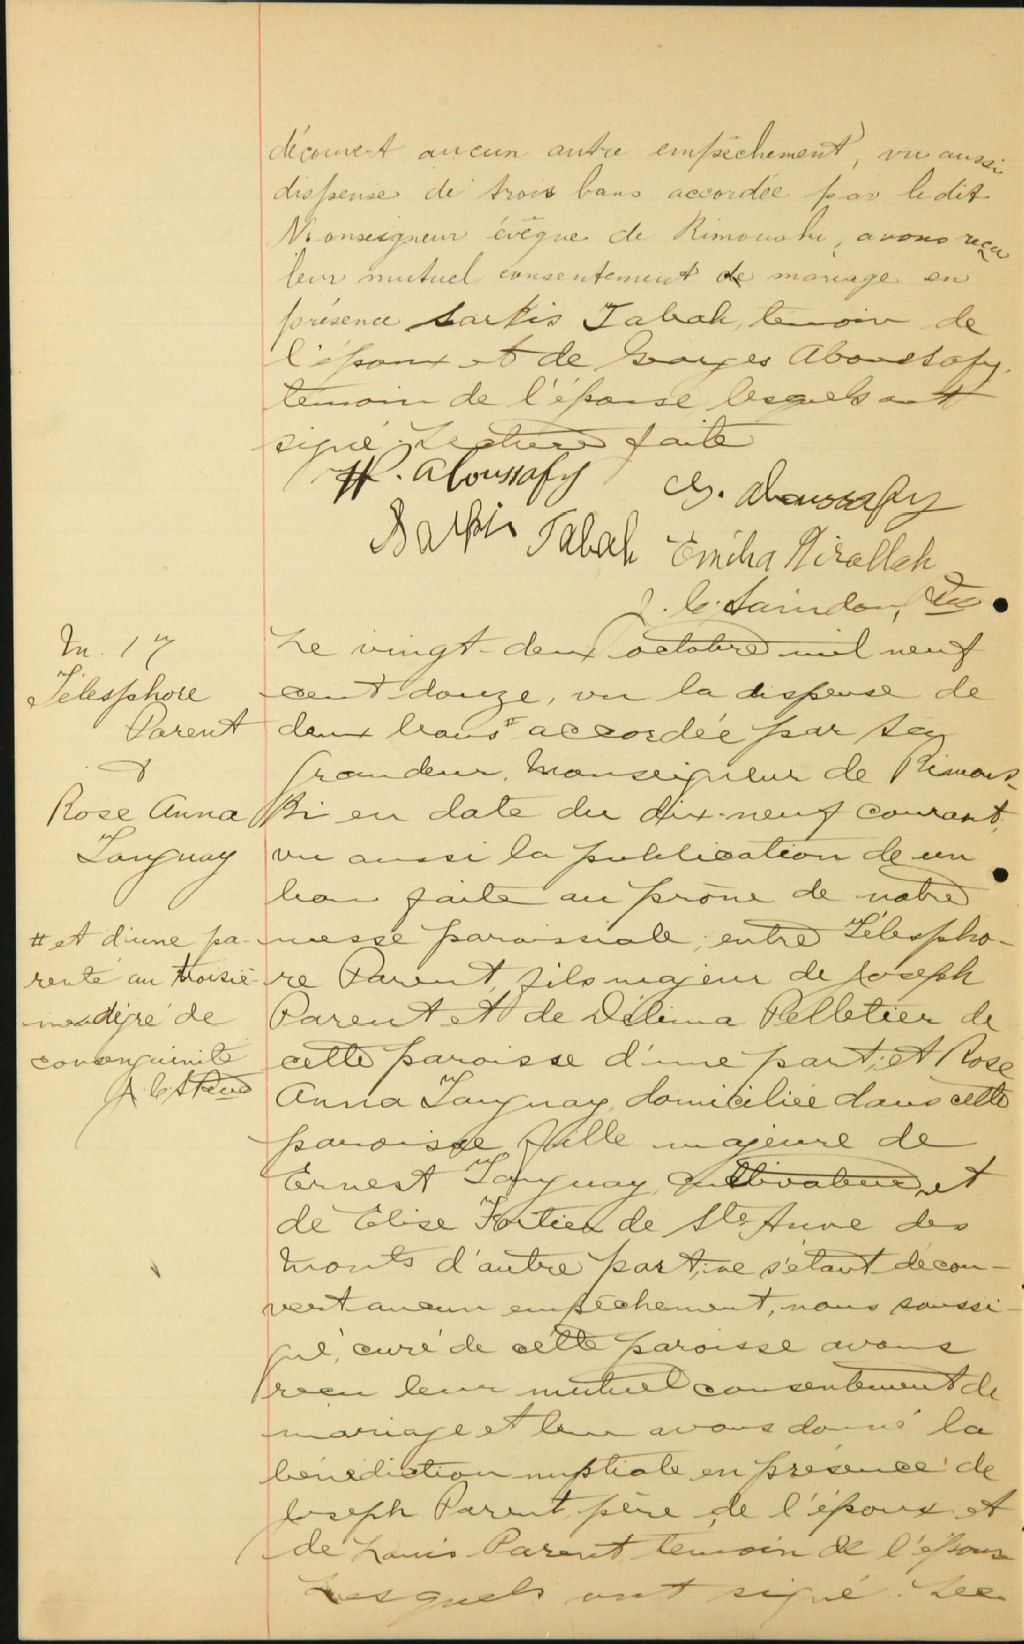 découvert aucun autre empêchement, vu aussi
dispense de trois bans accordée par ledit
Monseigneur évêque de Rimouski, avons reçu
leur mutuel consentement de mariage en
présence Sarkis Tabah, temoin de
l'époux et de Georges Aboussafy,
temoin de l'épouse lesquels ont
signé. Lecture faite
H. Aboussafy G. Aboussafy
Sarkis Tabah Emilia Nirallah
J. C. Saindon, Ptre
M. 17
Télesphore
Parent
&
Rose Anna
Tanguay
# et d'une pa-
renté au troisiè-
me dégré de
consanguinité
J. C. S. Ptre
Le vingt-deux octobre mil neuf
cent douze, vu la dispense de
deux bans # accordée par Sa
Grandeur, Monseigneur de Rimous-
ki en date du dix-neuf courant,
vu aussi la publication de un
ban faite au prône de notre
messe paroissiale, entre Télespho-
re Parent, fils majeur de Joseph
Parent et de Délima Pelletier de
cette paroisse d'une part, et Rose
Anna Tanguay, domiciliée dans cette
paroisse fille majeure de
Ernest Tanguay, cultivateur et
de Elise Fortier de Ste Anne des
Monts d'autre part, ne s'étant décou-
vert aucun empêchement, nous soussi-
gné, curé de cette paroisse avons
reçu leur mutuel consentement de
mariage et leur avons donné la
bénédiction nuptiale en présence de
Joseph Parent, père de l'époux et
de Louis Parent temoin de l'épouse
Lesquels ont signé. Lec-